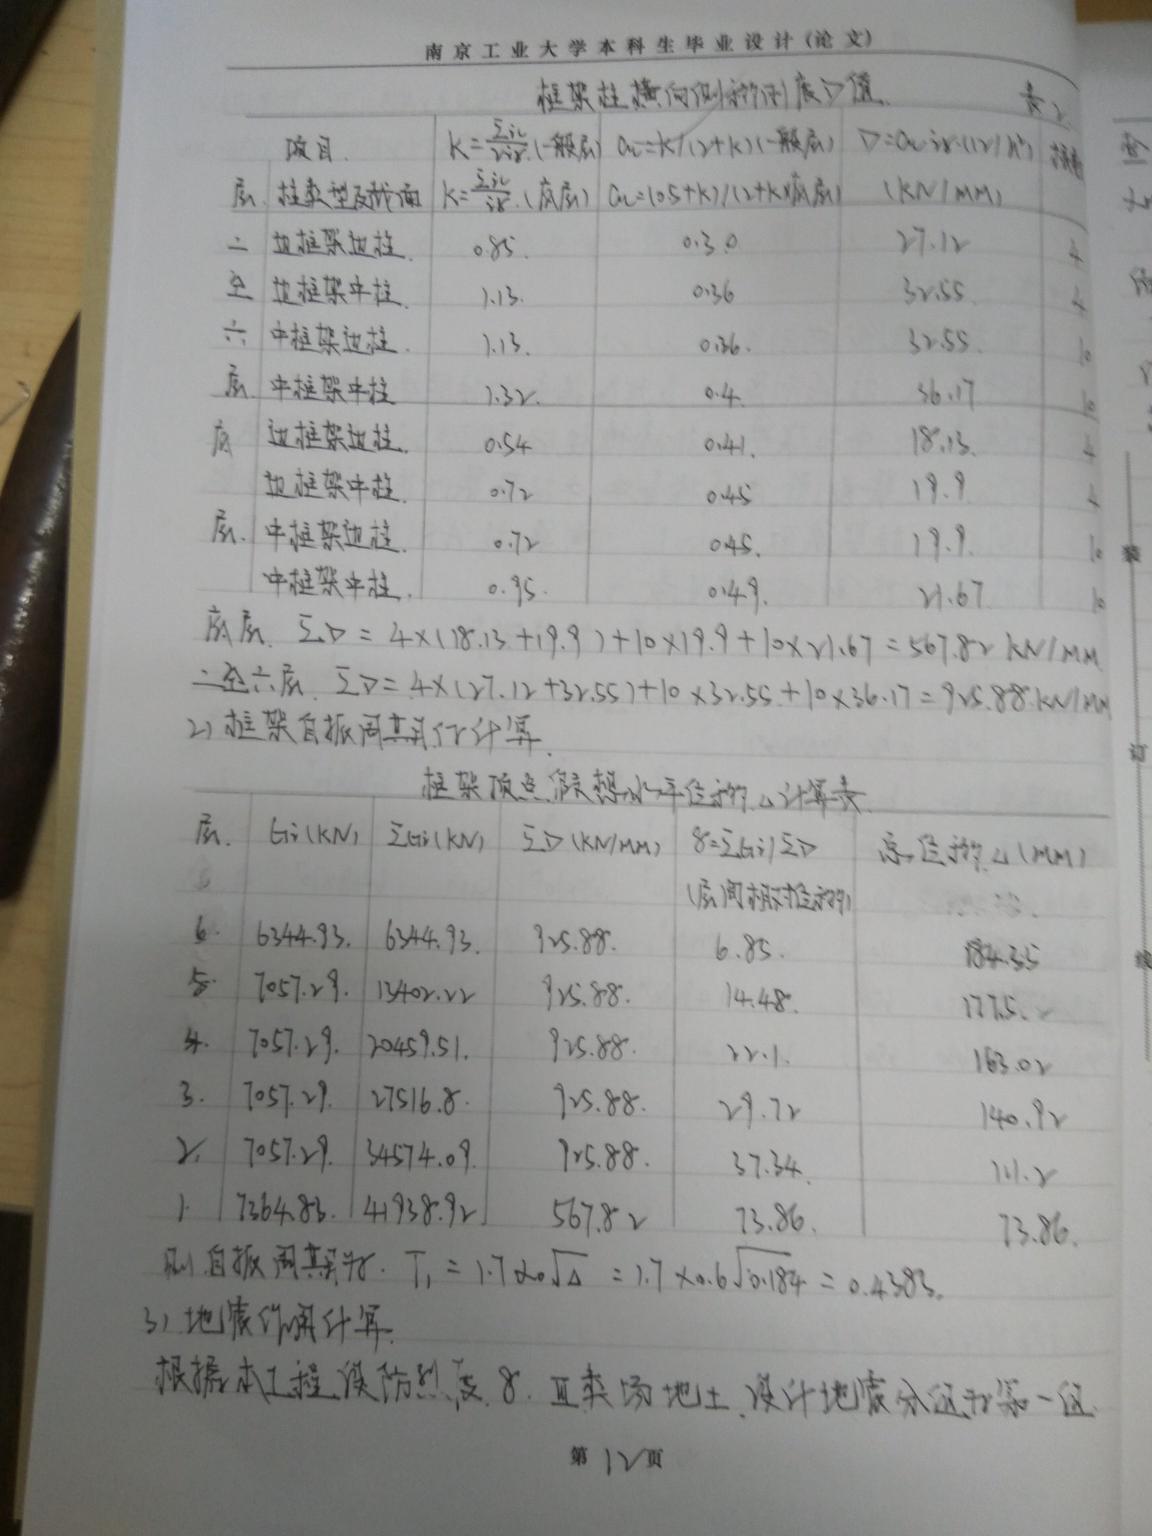 南京工业大学本科生毕业设计(论文)
框架柱横向侧移刚度D值 表2
项目 K=Σic/2ic(一般层) αc=K/(2+K)(一般层) D=αc·ic·(12/h²) 根数
层 柱类型及截面 K=Σic/ic(底层) αc=(0.5+K)/(2+K)(底层) (KN/MM)
二 边框架边柱 0.85 0.30 27.12 4
至 边框架中柱 1.13 0.36 32.55 4
六 中框架边柱 1.13 0.36 32.55 10
层 中框架中柱 1.32 0.4 36.17 10
底 边框架边柱 0.54 0.41 18.13 4
边框架中柱 0.72 0.45 19.9 4
层 中框架边柱 0.72 0.45 19.9 10
中框架中柱 0.95 0.49 21.67 10
底层 ΣD=4×(18.13+19.9)+10×19.9+10×21.67=567.82KN/MM
二至六层 ΣD=4×(27.12+32.55)+10×32.55+10×36.17=925.88KN/MM
2)框架自振周期计算
框架顶点假想水平位移△计算表
层 Gi(KN) ΣGi(KN) ΣD(KN/MM) δ=ΣGi/ΣD 总位移△(MM)
(层间相对位移)
6 6344.93 6344.93 925.88 6.85 184.35
5 7057.29 13402.22 925.88 14.48 177.5
4 7057.29 20459.51 925.88 22.1 163.02
3 7057.29 27516.8 925.88 29.72 140.92
2 7057.29 34574.09 925.88 37.34 111.2
1 7364.83 41938.92 567.82 73.86 73.86
则自振周期为 T₁=1.7α₀√△=1.7×0.6√0.184=0.4383
3)地震作用计算
根据本工程设防烈度8 Ⅱ类场地土 设计地震分组为第一组
第12页
装
订
线